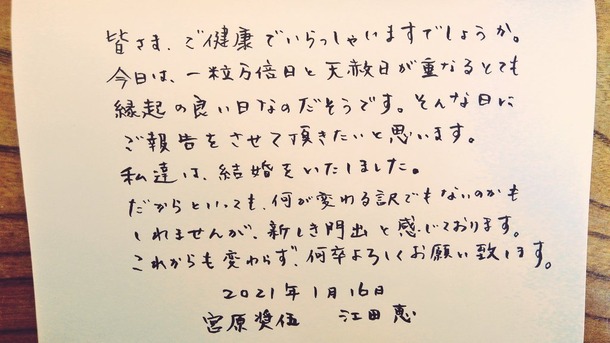 皆さま、ご健康でいらっしゃいますでしょうか。
今日は、一粒万倍日と天赦日が重なるとても
縁起の良い日なのだそうです。そんな日に
ご報告をさせて頂きたいと思います。
私達は、結婚をいたしました。
だからといっても、何が変わる訳でもないのかも
しれませんが、新しき門出と感じております。
これからも変わらず、何卒よろしくお願い致します。
2021年1月16日
宮原奨伍 江田恵